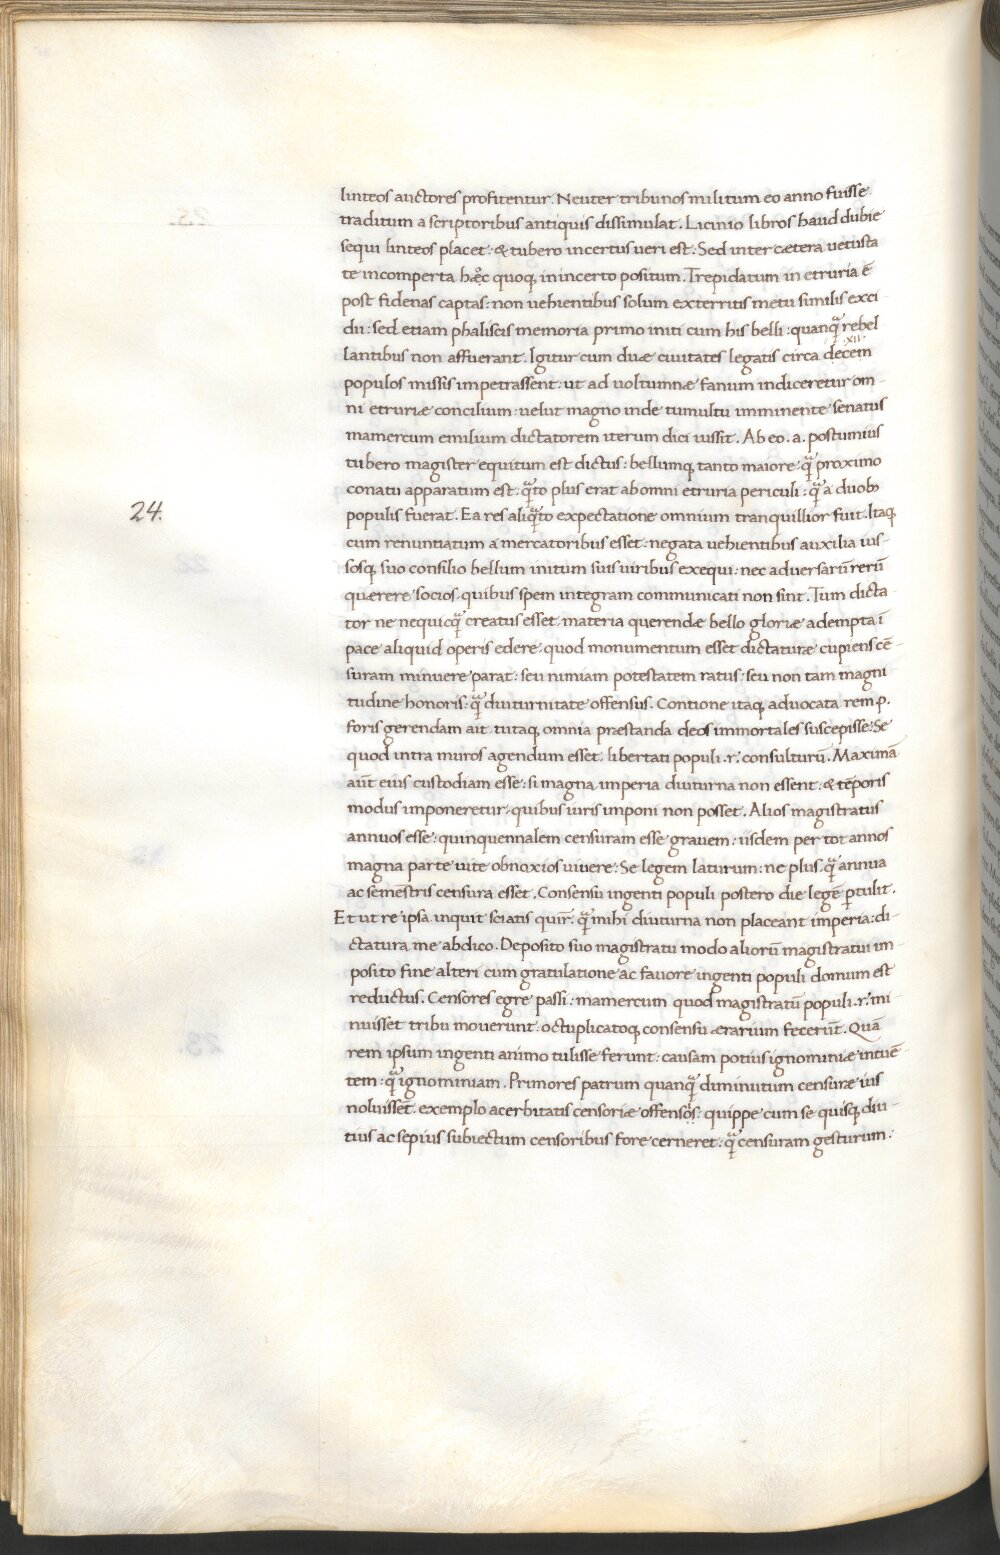 linteos auctores profitentur. Neuter tribunos militum eo anno fuisse
traditum a scriptoribus antiquis dissimulat. Licinio libros haud dubie
sequi linteos placet: & tubero incertus ueri est. Sed inter cætera uetusta
te incomperta hæc quoq; in incerto positum. Trepidatum in etruria ē
post fidenas captas: non uehientibus solum exterritis metu similis exci-
dii: sed etiam phaliscis memoria primo initi cum his belli: quanq̃ rebel
.xii.
lantibus non affuerant. Igitur cum duæ ciuitates legatis circa decem
populos missis impetrassent: ut ad uoltumnæ fanum indiceretur om-
ni etruriæ concilium: uelut magno inde tumultu imminente senatus
mamercum emilium dictatorem iterum dici iussit. Ab eo. a. postumius
tubero magister equitum est dictus: bellumq; tanto maiore: q̃ proximo
conatu apparatum est: q̃to plus erat ab omni etruria periculi: q̃ a duob;
24.
populis fuerat. Ea res aliq̃to expectatione omnium tranquillior fuit. Itaq;
cum renuntiatum a mercatoribus esset: negata uehientibus auxilia ius-
sosq; suo consilio bellum initum suis uiribus exequi: nec aduersarū rerū
querere socios. quibus spem integram communicati non sint. Tum dicta-
tor ne nequicq̃ creatus esset materia querendæ bello gloriæ adempta ī
pace aliquid operis edere: quod monumentum esset dictaturæ cupiens cē-
suram minuere parat: seu nimiam potestatem ratus: seu non tam magni
tudine honoris: q̃ diuturnitate offensus. Contione itaq; aduocata rem .p.
foris gerendam ait tutaq; omnia præstanda deos immortales suscepisse: Se
quod intra muros agendum esset. libertati populi .r. consulturū. Maximā
aūt eius custodiam esse: si magna imperia diuturna non essent: & tēporis
modus imponeretur, quibus iuris imponi non posset. Alios magistratus
annuos esse: quinquennalem censuram esse grauem: iisdem per tot annos
magna parte uite obnoxios uiuere: Se legem laturum: ne plus .q̃ annua
ac semestris censura esset. Consensu ingenti populi postero die legē ptulit.
Et ut re ipsa inquit sciatis quir̄: q̃ mihi diuturna non placeant imperia: di-
ctatura me abdico. Deposito suo magistratu modo aliorū magistratui im-
posito fine alteri cum gratulatione ac fauore ingenti populi domum est
reductus. Censores egre passi: mamercum quod magistratū populi .r. mi-
nuisset tribu mouerunt. octuplicatoq; consensu ærarium fecerūt. Quā
rem ipsum ingenti animo tulisse ferunt: causam potius ignominiæ intuē
tem: q̃ ignominiam. Primores patrum quanq̃ diminutum censuræ ius
noluissēt. exemplo acerbitatis censoriæ offensos: quippe cum se quisq; diu-
tius ac sepius subiectum censoribus fore cerneret: q̃ censuram gesturum: